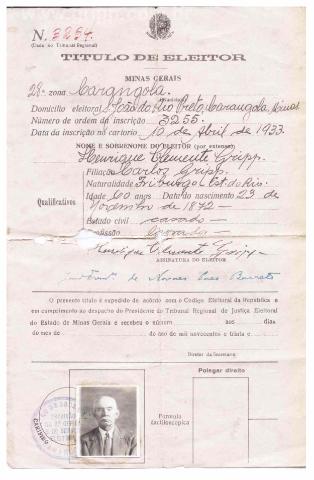 N. 3254.
(Dado no Tribunal Regional)
TITULO DE ELEITOR
MINAS GERAIS
28ª zona Carangola.
(Municipio)
Domicilio eleitoral S. João do Rio Preto, Carangola, Minas
Numero de ordem da inscrição 3255.
Data da inscrição no cartorio 10 de Abril de 1933.
NOME E SOBRENOME DO ELEITOR (por extenso)
Henrique Clemente Gripp.
Qualificativos
Filiação Carlos Gripp.
Naturalidade Friburgo, Est. do Rio.
Idade 60 anos Data do nascimento 23 de
de 1872
Estado civil casado
Profissão lavrador
Henrique Clemente Gripp
ASSINATURA DO ELEITOR
de Moraes
O presente titulo é expedido de acôrdo com o Codigo Eleitoral da Republica e
em cumprimento ao despacho do Presidente do Tribunal Regional de Justiça Eleitoral
do Estado de Minas Gerais e recebeu o número aos dias
do mes de do ano de mil novecentos e trinta e
Diretor da Secretaria
Polegar direito
Formula
dactiloscopica
CARIMBO